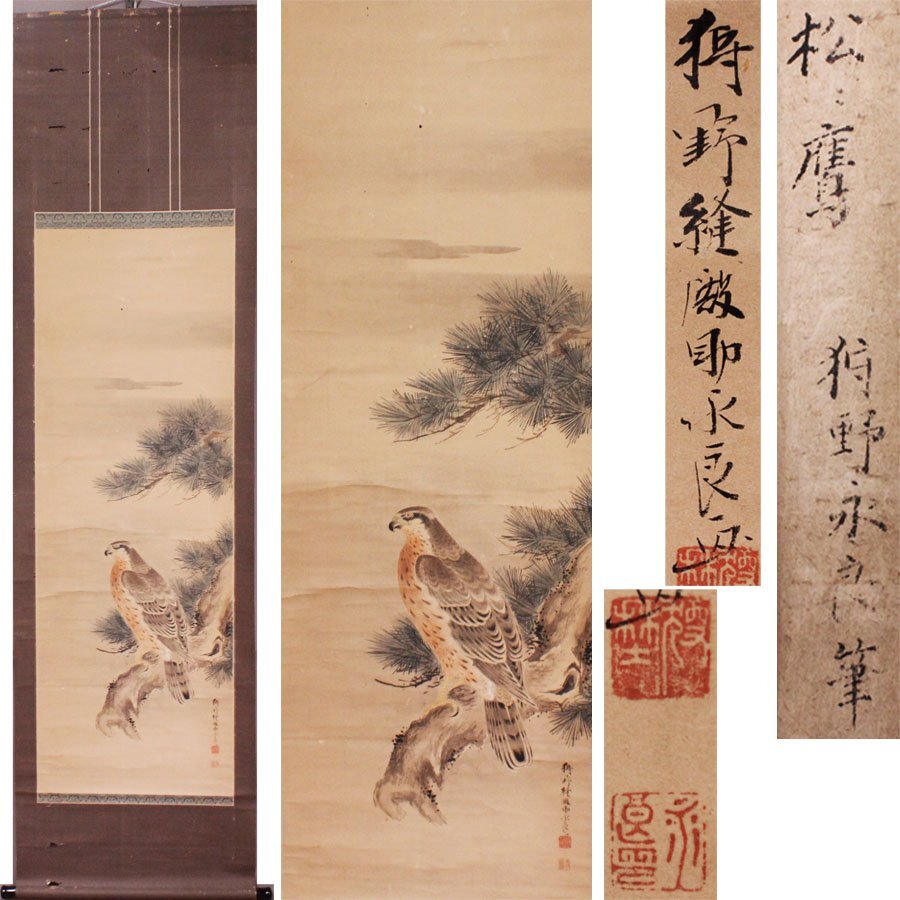 狩野縫殿助永良画
松ニ鷹
狩野永良筆
永良印